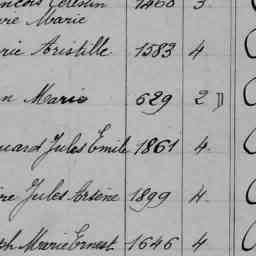 Celestin 1460 3
Marie
Aristille 1583 4
Marie 629 2
Jules Emile 1861 4.
Jules Arsène 1899 4.
Marie Ernest 1646 4